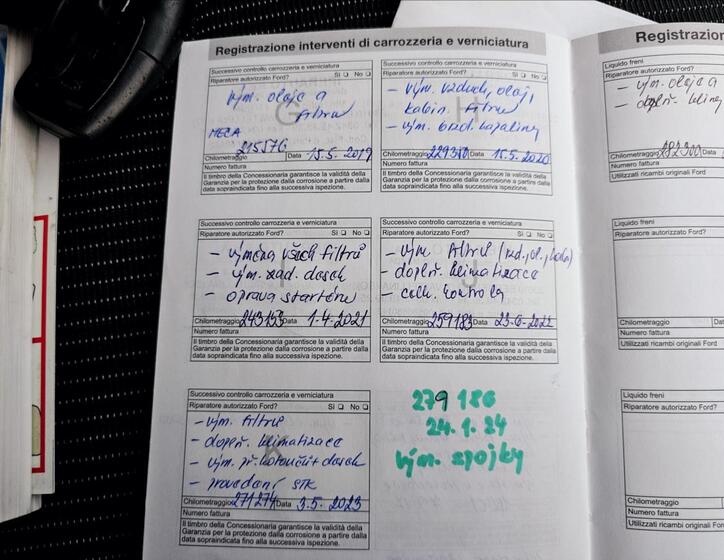 Registrazione interventi di carrozzeria e verniciatura
Successivo controllo carrozzeria e verniciatura
Riparatore autorizzato Ford? Sì ❏ No ❏
G
vým. oleje a
filtrů
215576
Chilometraggio Data 15.5.2019
Numero fattura
Il timbro della Concessionaria garantisce la validità della
Garanzia per la protezione dalla corrosione a partire dalla
data sopraindicata fino alla successiva ispezione.
Successivo controllo carrozzeria e verniciatura
Riparatore autorizzato Ford? Sì ❏ No ❏
H
- vým. vzduch, olej,
kabin. filtrů
- vým. brzd. kapaliny
Chilometraggio Data 15.5.2020
Numero fattura
Il timbro della Concessionaria garantisce la validità della
Garanzia per la protezione dalla corrosione a partire dalla
data sopraindicata fino alla successiva ispezione.
Successivo controllo carrozzeria e verniciatura
Riparatore autorizzato Ford? Sì ❏ No ❏
- výměna všech filtrů
- vým. zad. desek
- oprava startéru
Chilometraggio 243153 Data 1.4.2021
Numero fattura
Il timbro della Concessionaria garantisce la validità della
Garanzia per la protezione dalla corrosione a partire dalla
data sopraindicata fino alla successiva ispezione.
Successivo controllo carrozzeria e verniciatura
Riparatore autorizzato Ford? Sì ❏ No ❏
- vým. filtrů
- doplň. klimatizace
- celk. kontrola
Chilometraggio 259183 Data 23.6.2022
Numero fattura
Il timbro della Concessionaria garantisce la validità della
Garanzia per la protezione dalla corrosione a partire dalla
data sopraindicata fino alla successiva ispezione.
Successivo controllo carrozzeria e verniciatura
Riparatore autorizzato Ford? Sì ❏ No ❏
K
- vým. filtrů
- doplň. klimatizace
- vým. př. kotoučů + desek
- provedení STK
Chilometraggio 271274 Data 3.5.2023
Numero fattura
Il timbro della Concessionaria garantisce la validità della
Garanzia per la protezione dalla corrosione a partire dalla
data sopraindicata fino alla successiva ispezione.
279 186
24.1.24
vým. spojky
Registrazion
Liquido freni
Riparatore autorizzato Ford?
- vým. oleje a
- doplň.
Chilometraggio 282300
Numero fattura
Utilizzati ricambi originali Ford
Liquido freni
Riparatore autorizzato Ford?
Chilometraggio Da
Numero fattura
Utilizzati ricambi originali Ford
Liquido freni
Riparatore autorizzato Ford?
Chilometraggio
Numero fattura
Utilizzati ricambi originali Ford